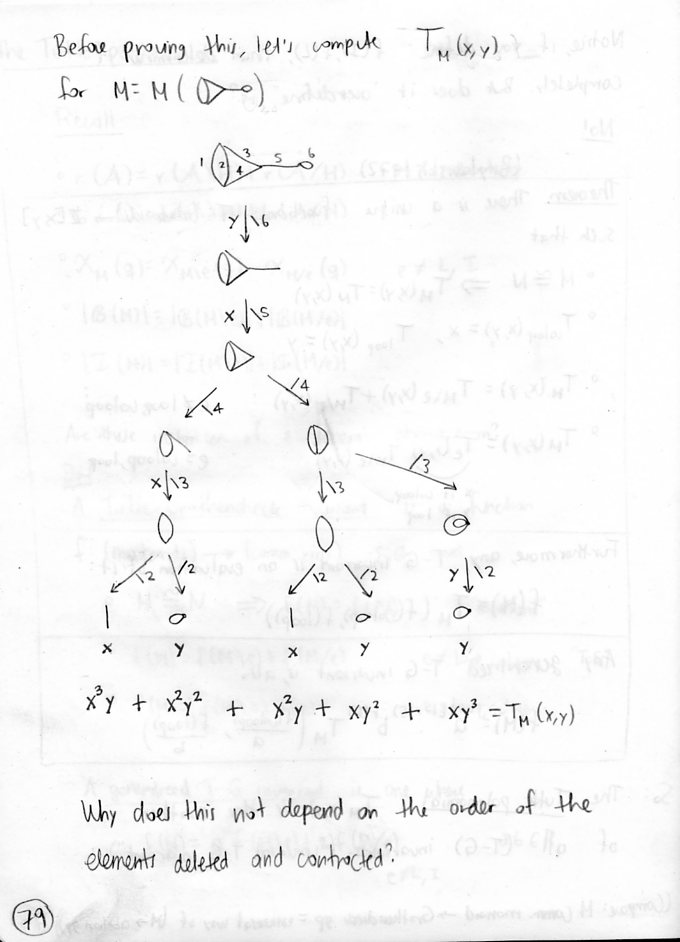 Before proving this, let's compute T_M(x,y)
for M = M( )
1 2 3 4 5 6
y \6
x \5
\4 /4
x \3 \3 /3
\2 /2 \2 /2 y \2
x y x y y
x³y + x²y² + x²y + xy² + xy³ = T_M(x,y)
Why does this not depend on the order of the
elements deleted and contracted?
79